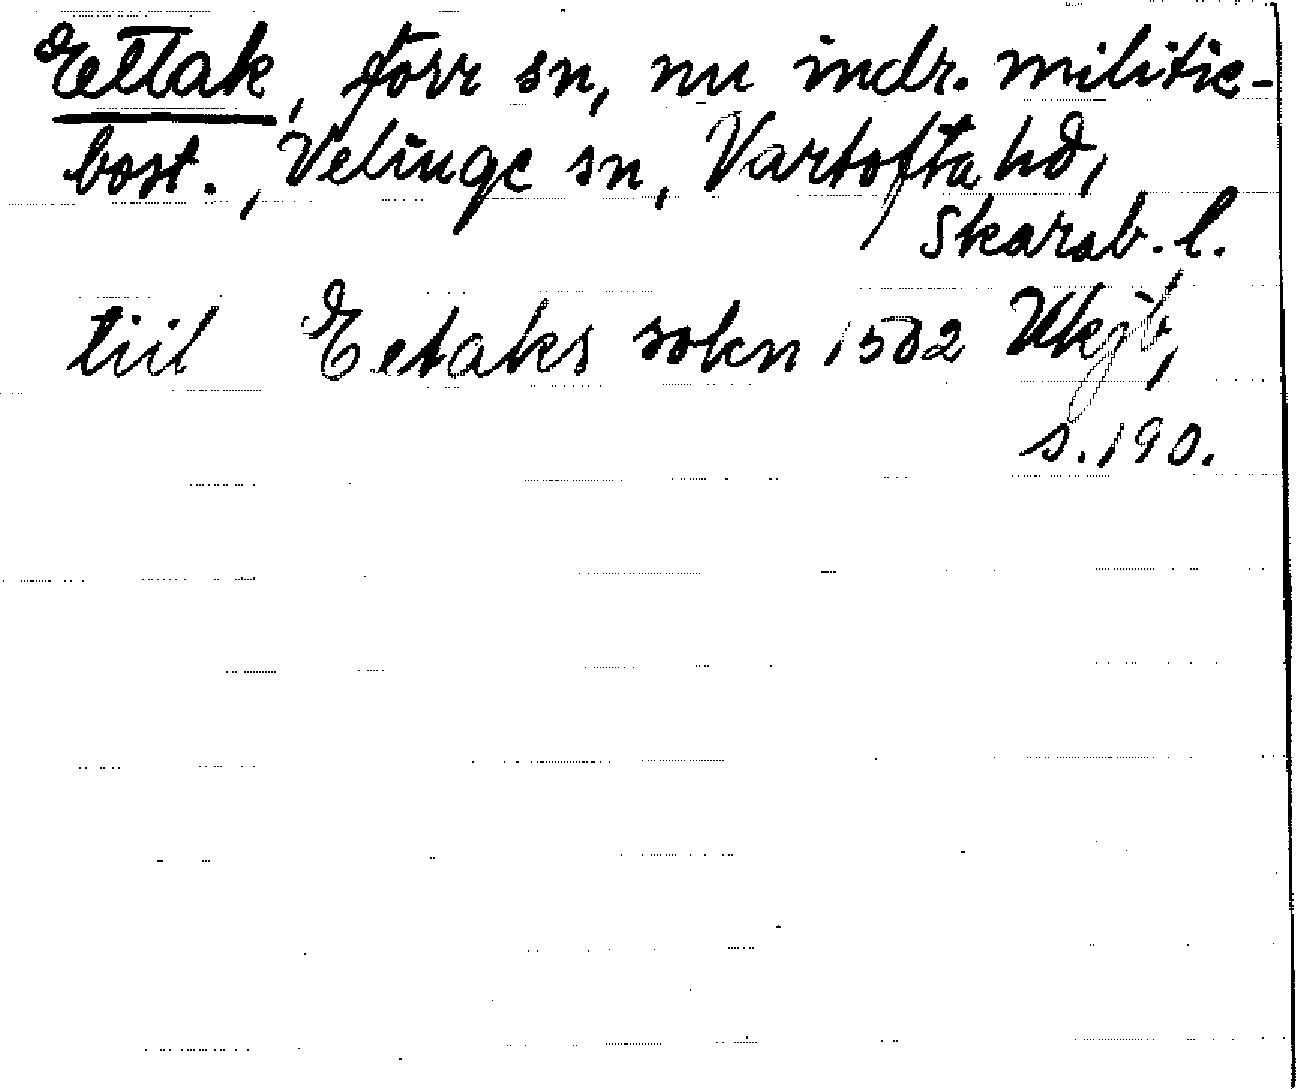 Ettak, förr sn, nu indr. militie-
bost., Velinge sn, Vartofta hd,
Skarab. l.
tiil Eetaks sokn 1502 Vkjb,
s. 190.